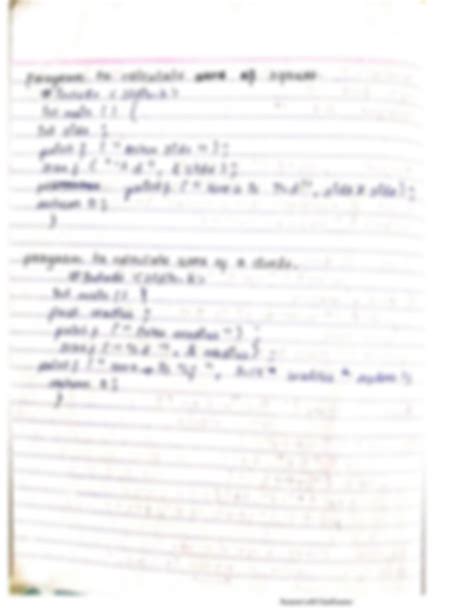 program to calculate area of square
#include <stdio.h>
int main () {
int side ;
printf ( " enter side " ) ;
scanf ( " % d " , & side ) ;
printf ( " area is % d " , side * side ) ;
return 0 ;
}
program to calculate area of a circle.
#include <stdio.h>
int main () {
float radius ;
printf ( " enter radius " ) ;
scanf ( " % d " , & radius ) ;
printf ( " area is % f " , 3.14 * radius * radius ) ;
return 0 ;
}
Scanned with CamScanner